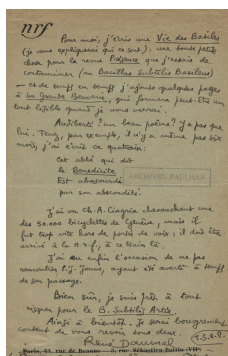 nrf
Pour moi, j'écris une Vie des Basiles
(je vous expliquerai ce que c'est) : une toute petite
chose pour la revue Préface que j'essaie de
contaminer (au Bacillus Subtilis Basileus)
— et de temps en temps j'ajoute quelques pages
à la Grande Beuverie, qui formera peut-être un
tout lisible quand je vous reverrai.
Audiberti ? un beau poème ? y a pas que
lui. Tenez, par exemple, il n'y a même pas dix
mois, j'ai écrit ce quatrain :
Cet abbé qui dit
le Benedicite
Est abasourdi
par son abscondité.
ARCHIVES PAULHAN
J'ai vu Ch. A. Cingria chevauchant une
des 50.000 bicyclettes de Genève, mais il
fut trop vite hors de portée de voix ; il doit être
arrivé à la n.r.f., à ce train là.
J'ai eu enfin l'occasion de ne pas
rencontrer P.J. Jouve, ayant été averti à temps
de son passage.
Bien sûr, je suis prêt à tout
risquer pour le B. Subtilis Artis.
Ainsi à bientôt. Je serai bougrement
content de vous revoir tous deux.
René Daumal
(T.S.V.P.)
Paris, 43, rue de Beaune — 5, rue Sébastien-Bottin (VIIe)